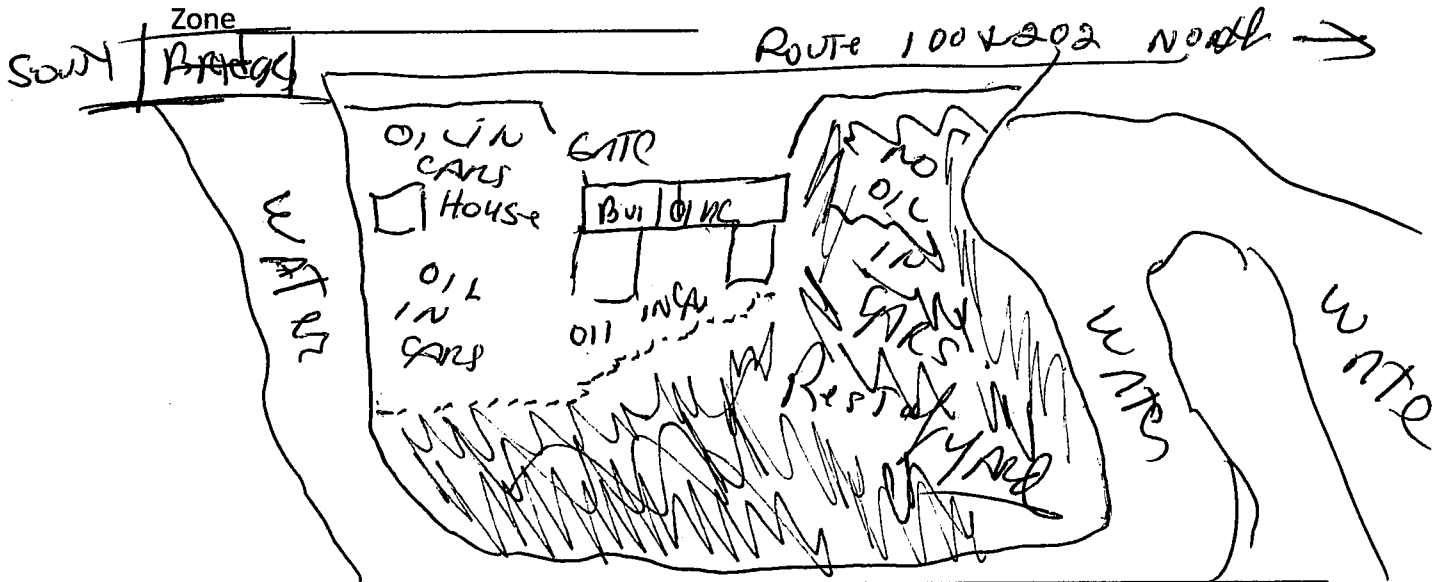 Zone
SOUTH Bridge ROUTE 100 & 202 NORTH
OIL IN
CARS
GATE
House
BUILDING
WATER
OIL
IN
CARS
OIL IN CA
NO
OIL
IN
CARS
Rest of
YARD
WATER
WATE